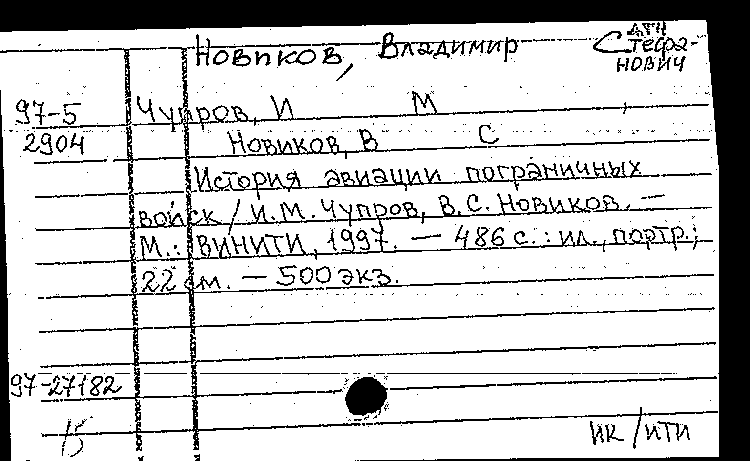 Новиков, Владимир Стефа-
нович
97-5 Чупров, И М
2904 Новиков, В С
История авиации пограничных
войск / И.М. Чупров, В.С. Новиков. —
М.: ВИНИТИ, 1997. — 486 с.: ил., портр.;
22 см. — 500 экз.
97-27182
15
ИК/ИТИ